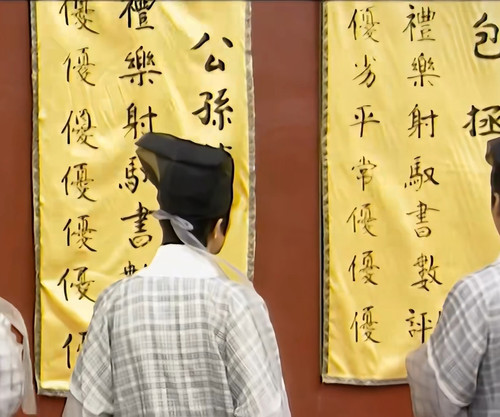 包拯
禮樂射馭書數評
優劣平常優優優
公孫
禮樂射馭書數
優優優優優優優